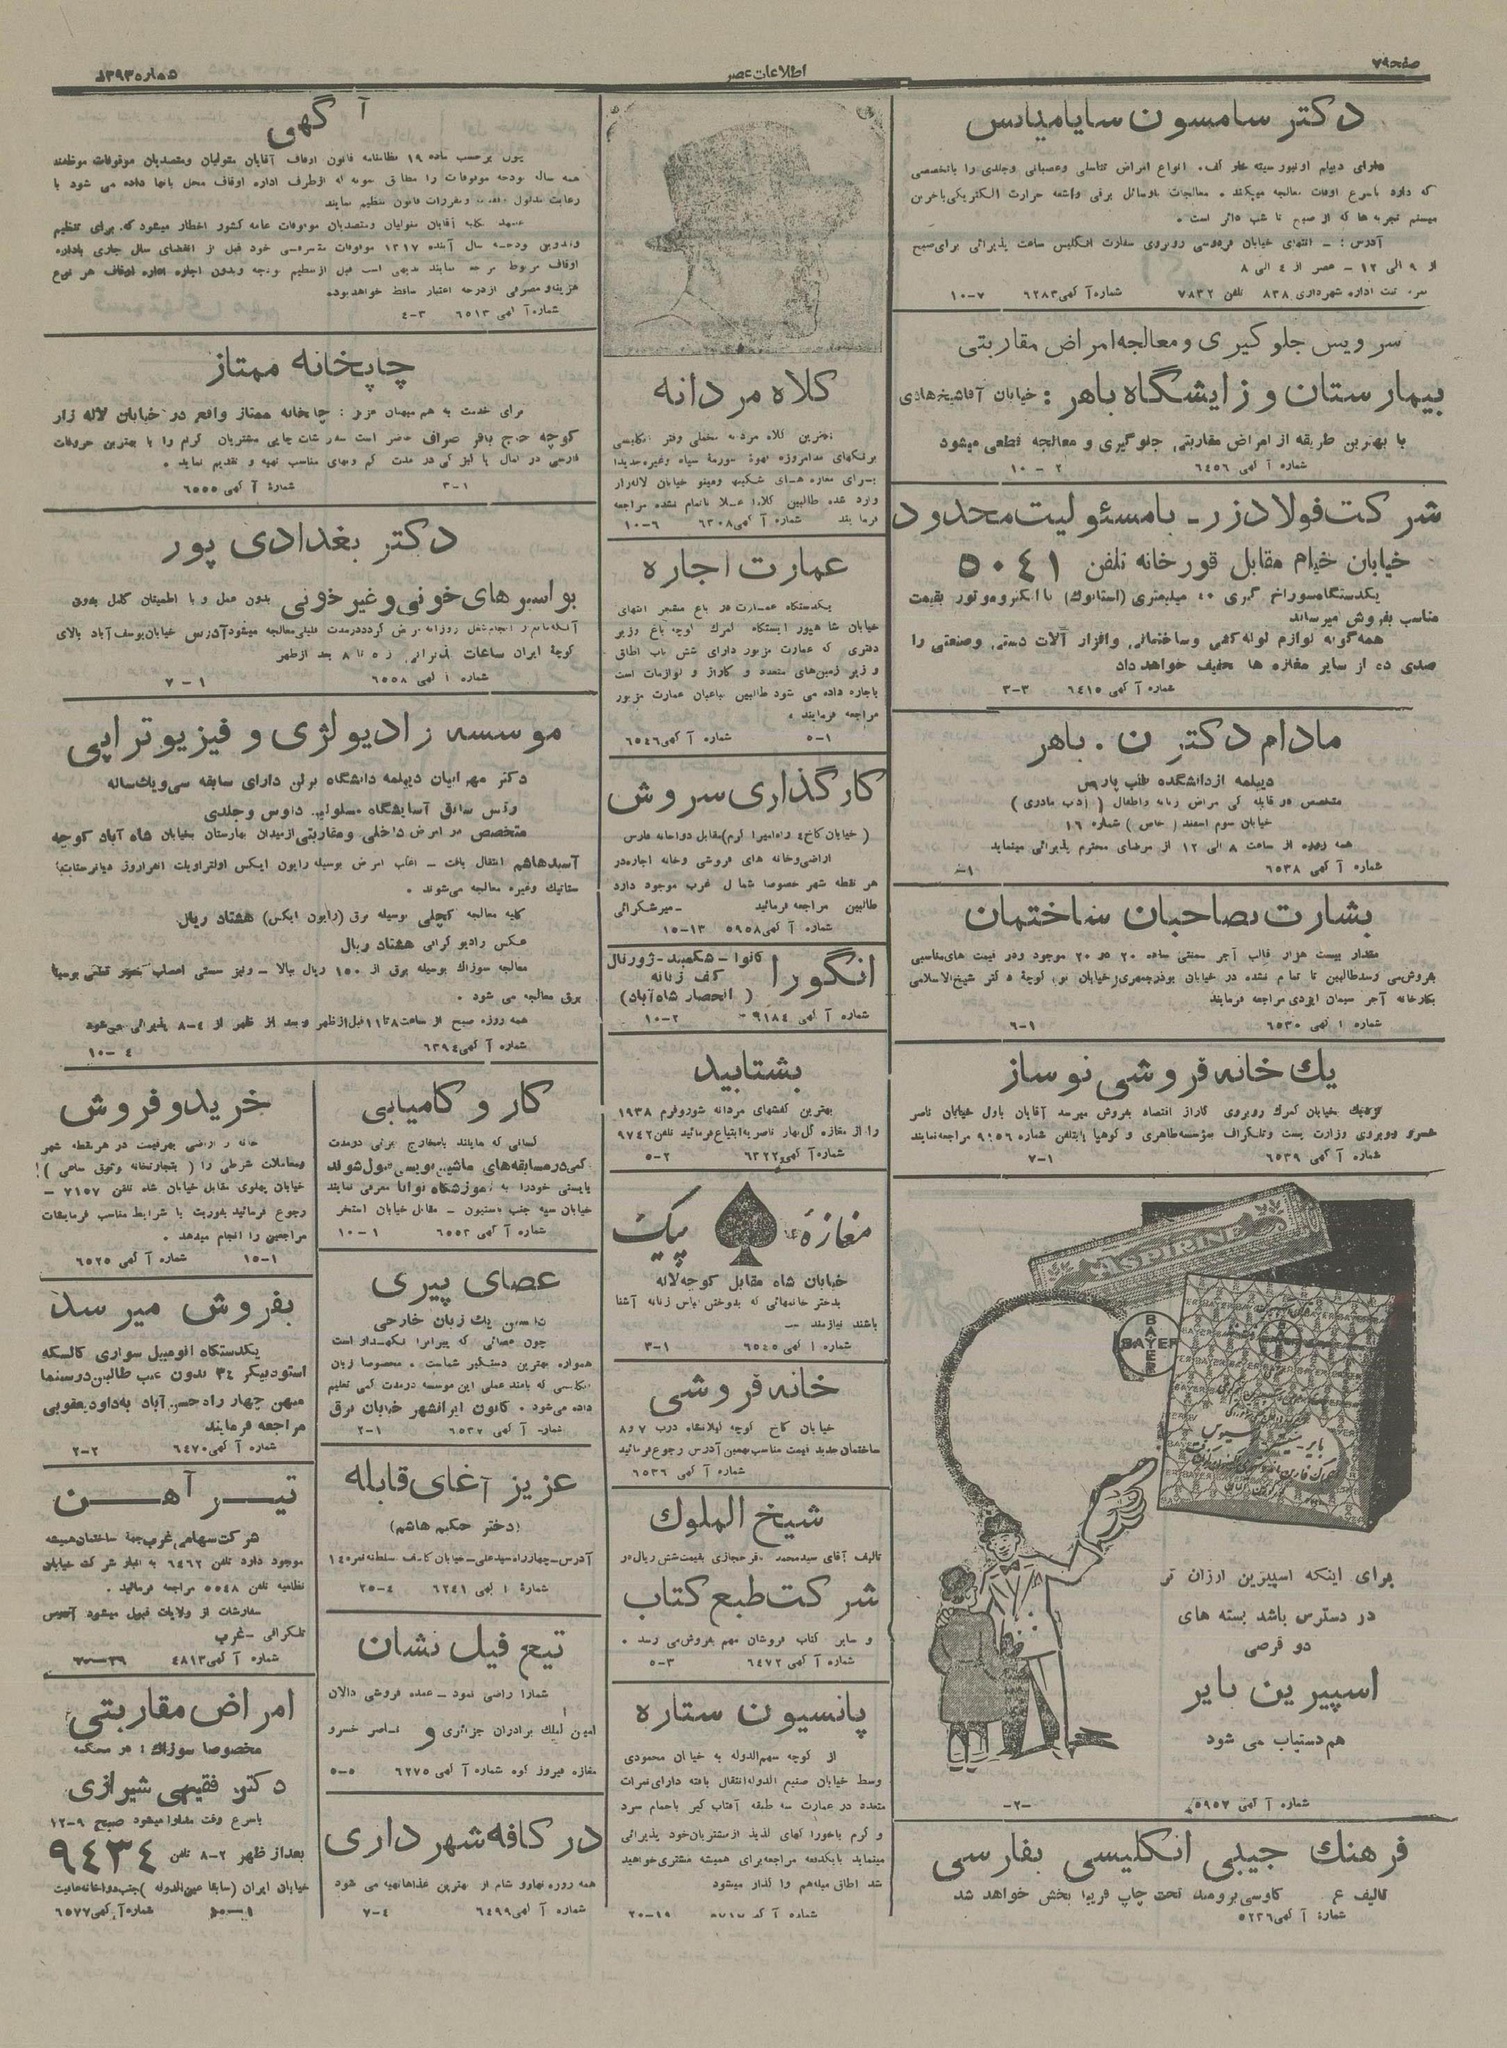 صفحه ۷۹
اطلاعات عصر
شماره ۳۹۳
دکتر سامسون سایامیانس
که دارد باسرع اوقات معالجه میکند . معالجات باوسائل برقی واشعه حرارت الکتریکی باخرین
سیستم تجربه ها که از صبح تا شب دائر است .
آدرس : – انتهای خیابان فردوسی روبروی سفارت انگلیس ساعت پذیرائی برای صبح
از ۹ الی ۱۲ – عصر از ٤ الی ۸
ثبت اداره شهرداری ۸۳۸ تلفن ۷۸۳۲ شماره آگهی ۶۲۸۳ ۷–۱۰
سرویس جلوگیری و معالجه امراض مقاربتی
بیمارستان و زایشگاه باهر : خیابان آقاشیخ هادی
با بهترین طریقه از امراض مقاربتی جلوگیری و معالجه قطعی میشود
شماره آگهی ۶۴۵۶ ۲ – ۱۰
شرکت فولادزر – بامسئولیت محدود
خیابان خیام مقابل قورخانه تلفن ۵۰۴۱
یکدستگاه سوراخ گیری ۴۰ میلیمتری (استانوك) با الکتروموتور بقیمت
مناسب بفروش میرساند
همه گونه لوازم لوله کشی وساختمانی وافزار آلات دستی وصنعتی را
صدی ده از سایر مغازه ها تخفیف خواهد داد
شماره آگهی ۶۴۱۵ ۳–۳
مادام دکتر ن . باهر
دیپلمه ازدانشکده طب پاریس
متخصص در قابله گی مراض زنانه واطفال
خیابان سوم اسفند (خاص) شماره ۱۶
همه روزه از ساعت ۸ الی ۱۲ از مرضای محترم پذیرائی مینماید
شماره آگهی ۶۵۳۸
بشارت بصاحبان ساختمان
مقدار بیست هزار قالب آجر سمنتی ساده ۲۰ در ۲۰ موجود ودر قیمت های مناسبی
بفروش می رسد طالبین تا تمام نشده در خیابان بوذرجمهری (خیابان نو) کوچهٔ دکتر شیخ الاسلامی
بکارخانه آجر سیمان ایزدی مراجعه فرمایند
شماره آگهی ۶۵۳۰ ۱–۶
یك خانه فروشی نوساز
نزدیك بخیابان گمرك روبروی گاراژ اقتصاد بفروش میرسد آقایان باول خیابان ناصر
خسرو روبروی وزارت پست وتلگراف بمؤسسه طاهری و کوهپا یابتلفن شماره ۹۱۵۶ مراجعه نمایند
شماره آگهی ۶۵۳۹ ۱–۷
ASPIRINE
BAYER
برای اینکه اسپیرین ارزان تر
در دسترس باشد بسته های
دو قرصی
اسپیرین بایر
هم دستیاب می شود
شماره آگهی ۵۹۵۷ –۲–
فرهنك جیبی انگلیسی بفارسی
تالیف ع کاوسی برومند تحت چاپ فریبا پخش خواهد شد
شماره آگهی ۵۲۳۶
کلاه مردانه
بهترین کلاه مردانه مخملی وفتر انگلیسی
برنگهای مدامروزه قهوهٔ سورمهٔ سیاه وغیره جدیدا
برای مغازه های شکیبا ومینو خیابان لاله زار
وارد شده طالبین کلاه عجلا تاتمام نشده مراجعه
فرمایند شماره آگهی ۶۳۰۸ ۶–۱۰
عمارت اجاره
یکدستگاه عمارت در باغ مشجر انتهای
خیابان شاهپور ایستگاه گمرك کوچه باغ وزیر
دفتری که عمارت مزبور دارای شش باب اطاق
و زیر زمین های متعدد و گاراژ و لوازمات است
باجاره داده می شود طالبین بباغبان عمارت مزبور
مراجعه فرمایند .
۱–۵ شماره آگهی ۶۵۴۶
کارگذاری سروش
اراضی وخانه های فروشی وخانه اجاره در
هر نقطه شهر خصوصا شمال غرب موجود دارد
طالبین مراجعه فرمائید – میرشکرائی
شماره آگهی ۵۹۵۸ ۱۳–۱۵
انگورا
کانوا – شکمبند – ژورنال
کف زنانه
(انحصار شاه آباد)
شماره آگهی ۹۱۸۴ ۲–۱۰
بشتابید
بهترین کفشهای مردانه شوروفرم ۱۹۳۸
را از مغازه گل بهار ناصریه ابتیاع فرمائید تلفن ۹۷۴۲
شماره آگهی ۶۳۲۲ ۲–۵
مغازه پیک
خیابان شاه مقابل کوچه لاله
بدختر خانمهائی که بدوختن لباس زنانه آشنا
باشند نیازمند است
شماره آگهی ۶۵۴۵ ۱–۳
خانه فروشی
خیابان کاخ کوچه لیلانگاه درب ۷و۸
ساختمان جدید قیمت مناسب بهمین آدرس رجوع فرمائید
شماره آگهی ۶۵۳۶
شیخ الملوك
شرکت طبع کتاب
و سایر کتاب فروشان مهم بفروش می رسد .
شماره آگهی ۶۴۷۲ ۳–۵
پانسیون ستاره
از کوچه سهم الدوله به خیابان محمودی
وسط خیابان صنیع الدوله انتقال یافته دارای نمرات
متعدد در عمارت سه طبقه آفتاب گیر باحمام سرد
و گرم باخوراکهای لذیذ ازمشتریان خود پذیرائی
مینماید بایکدفعه مراجعه برای همیشه مشتری خواهید
شد اطاق مبله هم واگذار میشود
۱۹–۲۰
آگهی
چون برحسب ماده ۱۹ نظامنامه قانون اوقاف آقایان متولیان ومتصدیان موقوفات موظفند
همه ساله بودجه موقوفات را مطابق نمونه که ازطرف اداره اوقاف محل بآنها داده می شود با
رعایت مدلول وقفنامه ومقررات قانون تنظیم نمایند
علیهذا بکلیه آقایان متولیان ومتصدیان موقوفات عامه کشور اخطار میشود که برای تنظیم
وتدوین بودجه سال آینده ۱۳۱۷ موقوفات متصرفی خود قبل از انقضای سال جاری باداره
اوقاف مربوط مراجعه نمایند بدیهی است قبل ازتنظیم بودجه وبدون اجازه اداره اوقاف هر نوع
هزینه ومصرفی ازدرجه اعتبار ساقط خواهد بود.
شماره آگهی ۶۵۱۳ ۳–۴
چاپخانه ممتاز
برای خدمت به هم میهنان عزیز : چاپخانه ممتاز واقع در خیابان لاله زار
کوچه حاج باقر صراف حاضر است سفارشات چاپی مشتریان گرام را با بهترین حروفات
فارسی در کمال پاکیزگی در مدت کم وبهای مناسب تهیه و تقدیم نماید .
شماره آگهی ۶۵۵۵ ۱–۳
دکتر بغدادی پور
بواسیرهای خونی و غیر خونی بدون عمل و با اطمینان کامل بدون
آنکه مانع از انجام شغل روزانه مریض گردد درمدت قلیلی معالجه میشود آدرس خیابان یوسف آباد بالای
کوچهٔ ایران ساعات پذیرائی از ۵ تا ۸ بعد ازظهر
شماره آگهی ۶۵۵۸ ۱–۷
موسسه رادیولژی و فیزیوتراپی
دکتر مهرانیان دیپلمه دانشگاه برلن دارای سابقه سی ویك ساله
متخصص در امراض داخلی ومقاربتی ازمیدان بهارستان بخیابان شاه آباد کوچه
آسیدهاشم انتقال یافت – اغلب امراض بوسیله رایون ایکس اولتراویلت انفراروژ دیاترمی
ستاتیك وغیره معالجه می شوند .
کلیه معالجه کچلی بوسیله برق (رایون ایکس) هشتاد ریال
عکس رادیوگرافی هشتاد ریال
معالجه سوزاك بوسیله برق از ۱۵۰ ریال ببالا – ونیز سستی اعصاب بطور قطعی بوسیله
برق معالجه می شود .
همه روزه صبح از ساعت ۸ تا ۱۱ قبل ازظهر وبعد از ظهر از ۴–۸ پذیرائی می شود
شماره آگهی ۶۳۹۴ ۴–۱۰
کار و کامیابی
کسانی که مایلند بامخارج جزئی درمدت
کمی درمسابقه های ماشین نویسی قبول شوند
بایستی خودرا به آموزشگاه توانا معرفی نمایند
خیابان سپه جنب باستیون – مقابل خیابان استخر
شماره آگهی ۶۵۵۳ ۱–۱۰
عصای پیری
دانستن یك زبان خارجی
چون عصائی که پیرانرا نگهدار است
همواره بهترین دستگیر شماست . مخصوصا زبان
انگلیسی که بامتد عملی این موسسه درمدت کمی تعلیم
داده می شود . کانون ایرانشهر خیابان برق
شماره آگهی ۶۵۳۷ ۱–۲
عزیز آغای قابله
(دختر حکیم هاشم)
شمارهٔ آگهی ۶۲۴۱ ۴–۲۵
تیغ فیل نشان
شمارا راضی نمود – عمده فروشی دالان
امین الملك برادران جزائری و ناصر خسرو
مغازه فیروز کوه شماره آگهی ۶۲۷۵ ۵–۵
در کافه شهرداری
همه روزه نهارو شام از بهترین غذاها تهیه می شود
شماره آگهی ۶۴۹۹ ۴–۷
خرید و فروش
خانه و اراضی بهرقیمت در هرنقطه شهر
ومعاملات شرطی را (بتجارتخانه وثوق ساعی)
خیابان پهلوی مقابل خیابان شاه تلفن ۷۱۵۷ –
رجوع فرمائید بفوریت با شرایط مناسب فرمایشات
مراجعین را انجام میدهد .
۱–۱۵ شماره آگهی ۶۵۲۵
بفروش میرسد
یکدستگاه اتومبیل سواری کالسکه
استودبیکر ۳٤ بدون عیب طالبین درسینما
میهن چهارراه حسن آباد به داود یعقوبی
مراجعه فرمایند
شماره آگهی ۶۴۷۰ ۲–۲
تیرآهن
شرکت سهامی غرب جهة ساختمان همیشه
موجود دارد تلفن ۶۴۶۲ به انبار شرکت خیابان
نظامیه تلفن ۵۵۴۸ مراجعه فرمائید .
سفارشات از ولایات قبول میشود آدرس
تلگرافی – غرب
شماره آگهی ۴۸۱۳
امراض مقاربتی
مخصوصا سوزاك : در محکمه
دکتر فقیهی شیرازی
باسرع وقت مداوا میشود صبح ۹–۱۲
بعداز ظهر ۲–۸ تلفن ۹۴۳۴
خیابان ایران (سابقا عین الدوله) جنب دواخانه هدایت
شماره آگهی ۶۵۷۷ ۱–۱۰